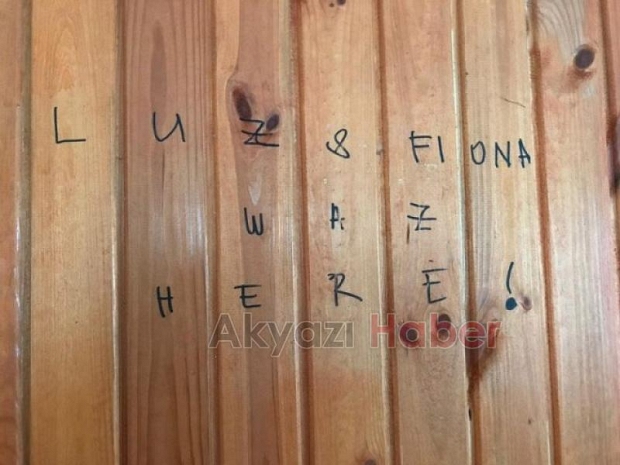 LUZ & FIONA
WAZ
HERE!
Akyazı Haber